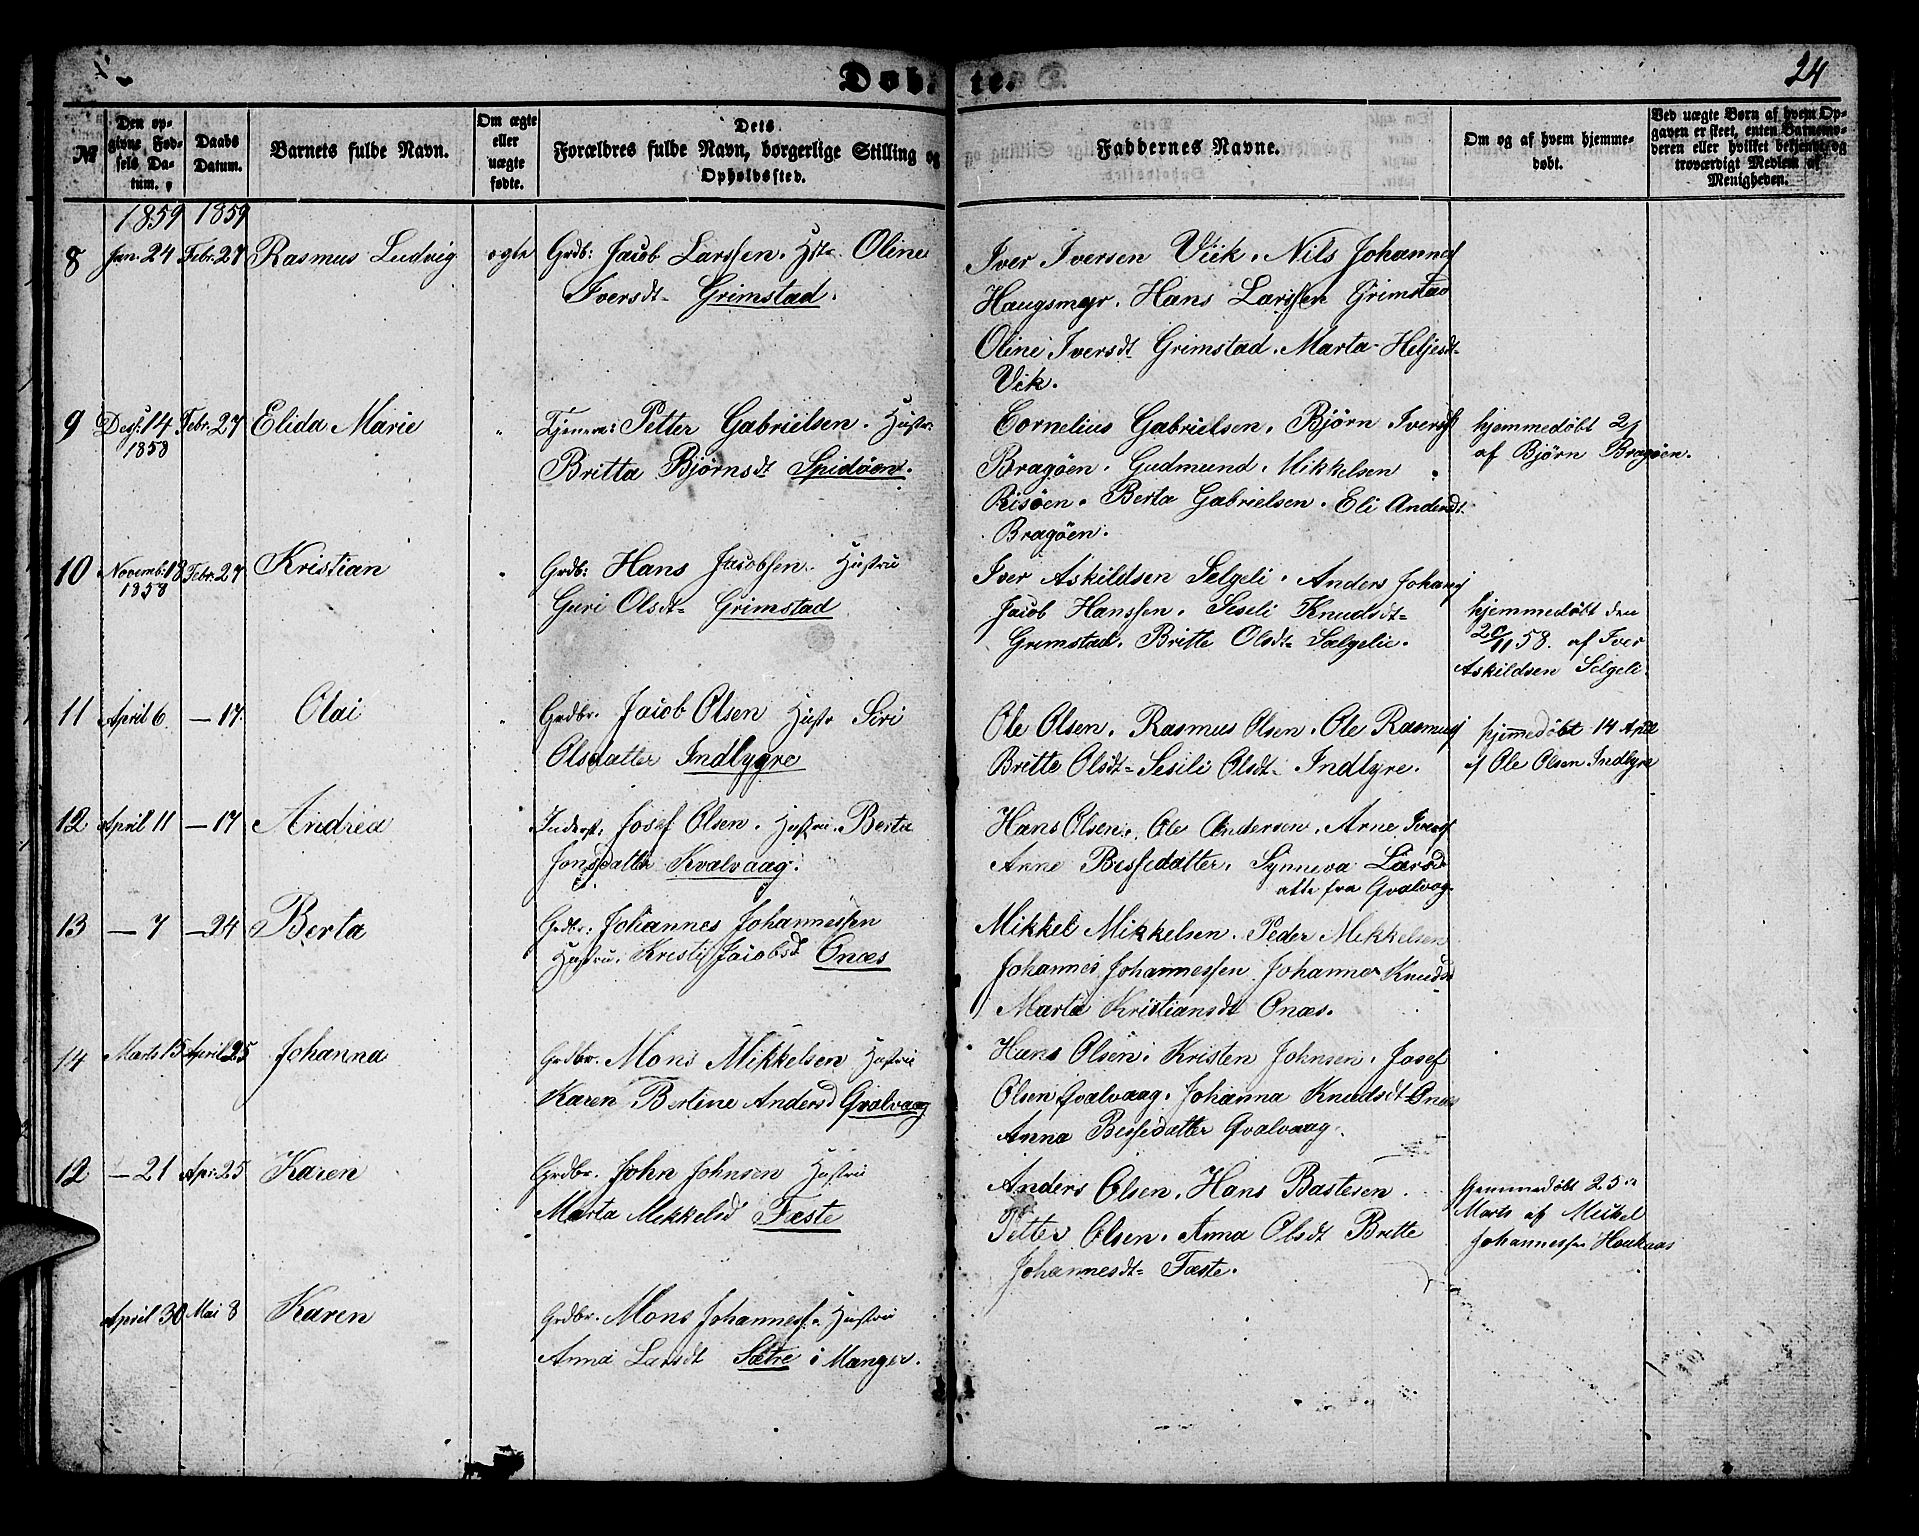 Døbte.
24
№
Den opgivne Fødsels Datum.
Daabs Datum.
Barnets fulde Navn.
Om ægte eller uægte fødte.
Dets Forældres fulde Navn, borgerlige Stilling og Opholdssted.
Faddernes Navne.
Om og af hvem hjemmedøbt.
Ved uægte Børn af hvem Opgaven er skeet, enten Barnemoderen eller hvilket bekjendt og troværdigt Medlem af Menigheden.
1859 1859
8 Jan. 24 Febr. 27 Rasmus Ludvig ægte Grdb: Jacob Larssen. Hstr. Oline
Iversdt- Grimstad.
Iver Iversen Viik. Nils Johannes
Haugsmyr. Hans Larssen Grimstad
Oline Iversdt Grimstad. Marta Heljesdt-
Vik.
9 Desb. 14 Febr. 27 Elida Marie " Tjener: Petter Gabrielsen. Hustr.
1858
Britta Bjørnsdt Spidøen.
Cornelius Gabrielsen. Bjørn Ivers
Bragøen. Gudmund. Mikkelsen
Risøen. Berta Gabrielsen. Eli Andersdt.
Bragøen.
hjemmedøbt
af Bjørn Bragøen.
10 Novemb. 18 Febr. 27 Kristian " Grdb: Hans Jacobsen. Hustru
1858
Guri Olsdt- Grimstad
Iver Askildsen Selgeli. Anders Johans
Jacob Hanssen. Seseli Knudsdt=
Grimstad. Britte Olsdt- Sælgelie.
hjemmedøbt den
20/11 58. af Iver
Askildsen Selgeli.
11 April 6. — 17. Olai " Grdbr. Jacob Olsen Hustr Siri
Olsdatter Indlygre
Ole Olsen. Rasmus Olsen. Ole Rasmus
Britte Olsdt= Sesili Olsdt- Indlyre.
hjemmedøbt 14 April
af Ole Olsen Indlyre
12 April 11 — 17 Andrea Inderst. Josef Olsen. Hustru. Berta
Jonsdatte Kvalvaag.
Hans Olsen. Ole Andersen. Arne Ivers
Anne Bessedatter. Synneva Larsd
atte fra Qvalvag.
13 — 7 — 24 Berta Grdbr: Johannes Johannessen
Hustru. Kristi Jacobsd Onæs
Mikkel Mikkelsen. Peder Mikkelsen
Johannes Johannessen Johanne Knudsd
Marta Kristiansdt Onæs.
14 Marts 15 April 25 Johanna Grdbr. Mons Mikkelsen Hustru
Karen Bertine Andersd Qvalvaag
Hans Olsen. Kristen Johnsen. Josef
Olsen Qvalvaag. Johanna Knudsdt- Onæs
Anna Bessedatter Qvalvaag.
12 — 21 Apr. 25 Karen Grdbr. John Johnsen Hustru
Marta Mikkelsd Fæste
Anders Olsen. Hans Bastesen.
Petter Olsen. Anna Olsdt Britte
Johannesdt= Fæste.
hjemmedøbt 25
Marts af Mikel
Johannessen Houkaas
April 30 Mai 8 Karen Grdbr. Mons Johanness. Hustru
Anna Larsdt Sætre i Manger.